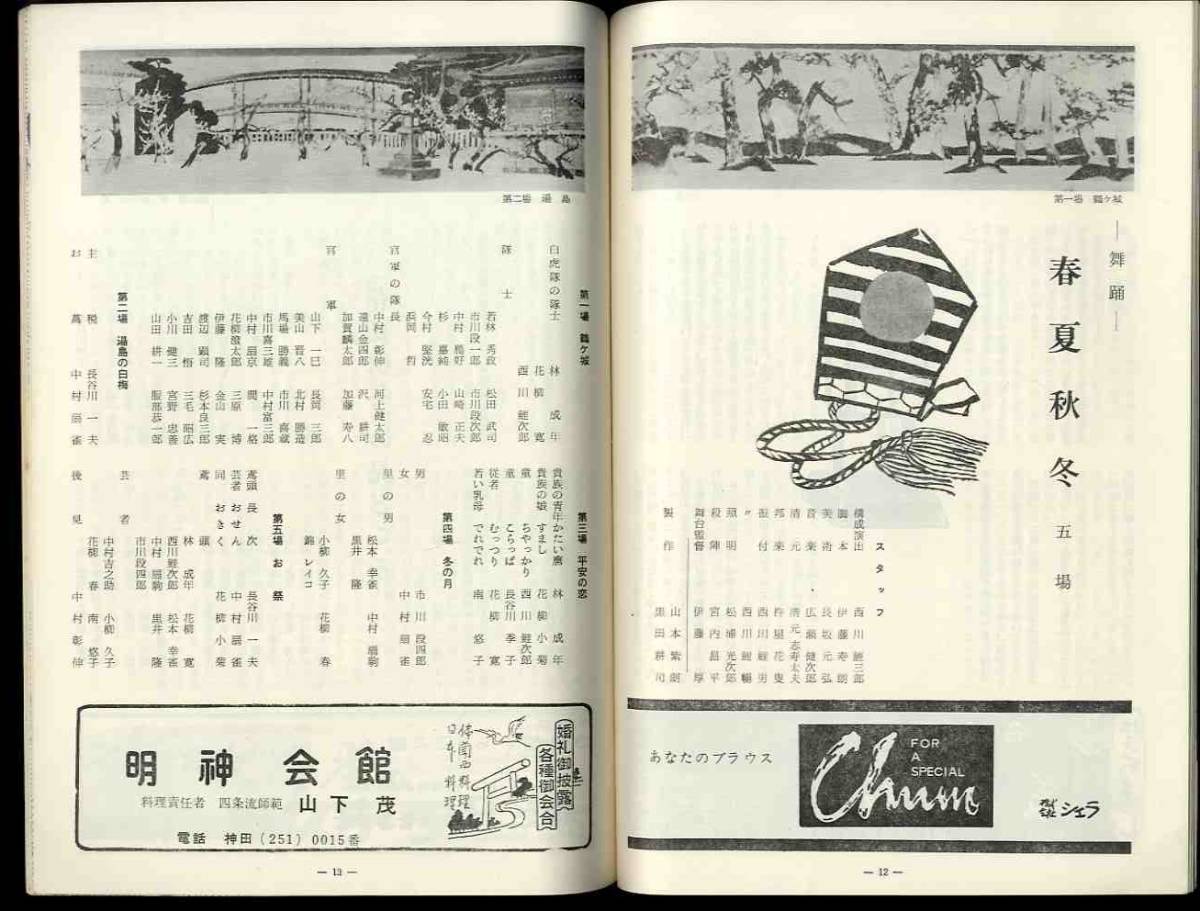 第一場 鶴ケ城
―舞踊―
春夏秋冬 五場
スタッフ
構成演出 西川鯉三郎
脚本 伊藤寿朗
美術 長坂元弘
音楽 広瀬健次郎
清元 清元志寿太夫
邦楽 杵屋花叟
振付 西川鯉男
〃 西川鯉暢
照明 松浦光次郎
殺陣 宮内昌平
舞台監督 伊藤厚
製作 山本紫朗
黒田耕司
あなたのブラウス
FOR
A
SPECIAL
Chum
シェラ
― 12 ―
第二場 湯島
第一場 鶴ケ城
白虎隊の隊士 林成年
花柳寛
西川鯉次郎
隊士 若林秀政 松田武司
市川段一郎 市川段次郎
中村鴈好 山崎正夫
杉嘉純 小田敏昭
今村堅洸 安宅忍
浜岡哲
官軍の隊長 中村彰伸 河上健太郎
遠山金四郎 沢耕司
加賀麟太郎 加藤寿八
官軍 山下一巳 長岡三郎
美山晋八 北村勝造
馬場勝義 市川喜蔵
市川喜三雄 中村富三郎
中村扇京 関一格
花柳滝太郎 三原博
伊藤隆 金山実
渡辺顕司 杉本良三郎
吉田悟 三毛昭広
小川健三 宮野忠善
山田耕一 服部恭一郎
第二場 湯島の白梅
主税 長谷川一夫
お蔦 中村扇雀
第三場 平安の恋
貴族の青年 かたい麿 林成年
貴族の娘 すまし 花柳小菊
童 ちゃっかり 西川鯉次郎
童 こらっぱ 長谷川季子
従者 むっつり 花柳寛
若い乳母 でれでれ 南悠子
第四場 冬の月
男 市川段四郎
女 中村扇雀
里の男 松本幸雀 中村扇駒
里井隆
里の女 小柳久子 花柳春
錦レイコ
第五場 お祭
鳶頭 長次 長谷川一夫
芸者 おせん 中村扇雀
同 おきく 花柳小菊
鳶頭 林成年 花柳寛
西川鯉次郎 松本幸雀
中村扇駒 里井隆
市川段四郎
芸者 中村吉之助 小柳久子
花柳春 南悠子
後見 中村彰伸
婚礼御披露
各種御会合
仏蘭西料理
日本料理
明神会館
料理責任者 四条流師範 山下茂
電話 神田(251)0015番
― 13 ―